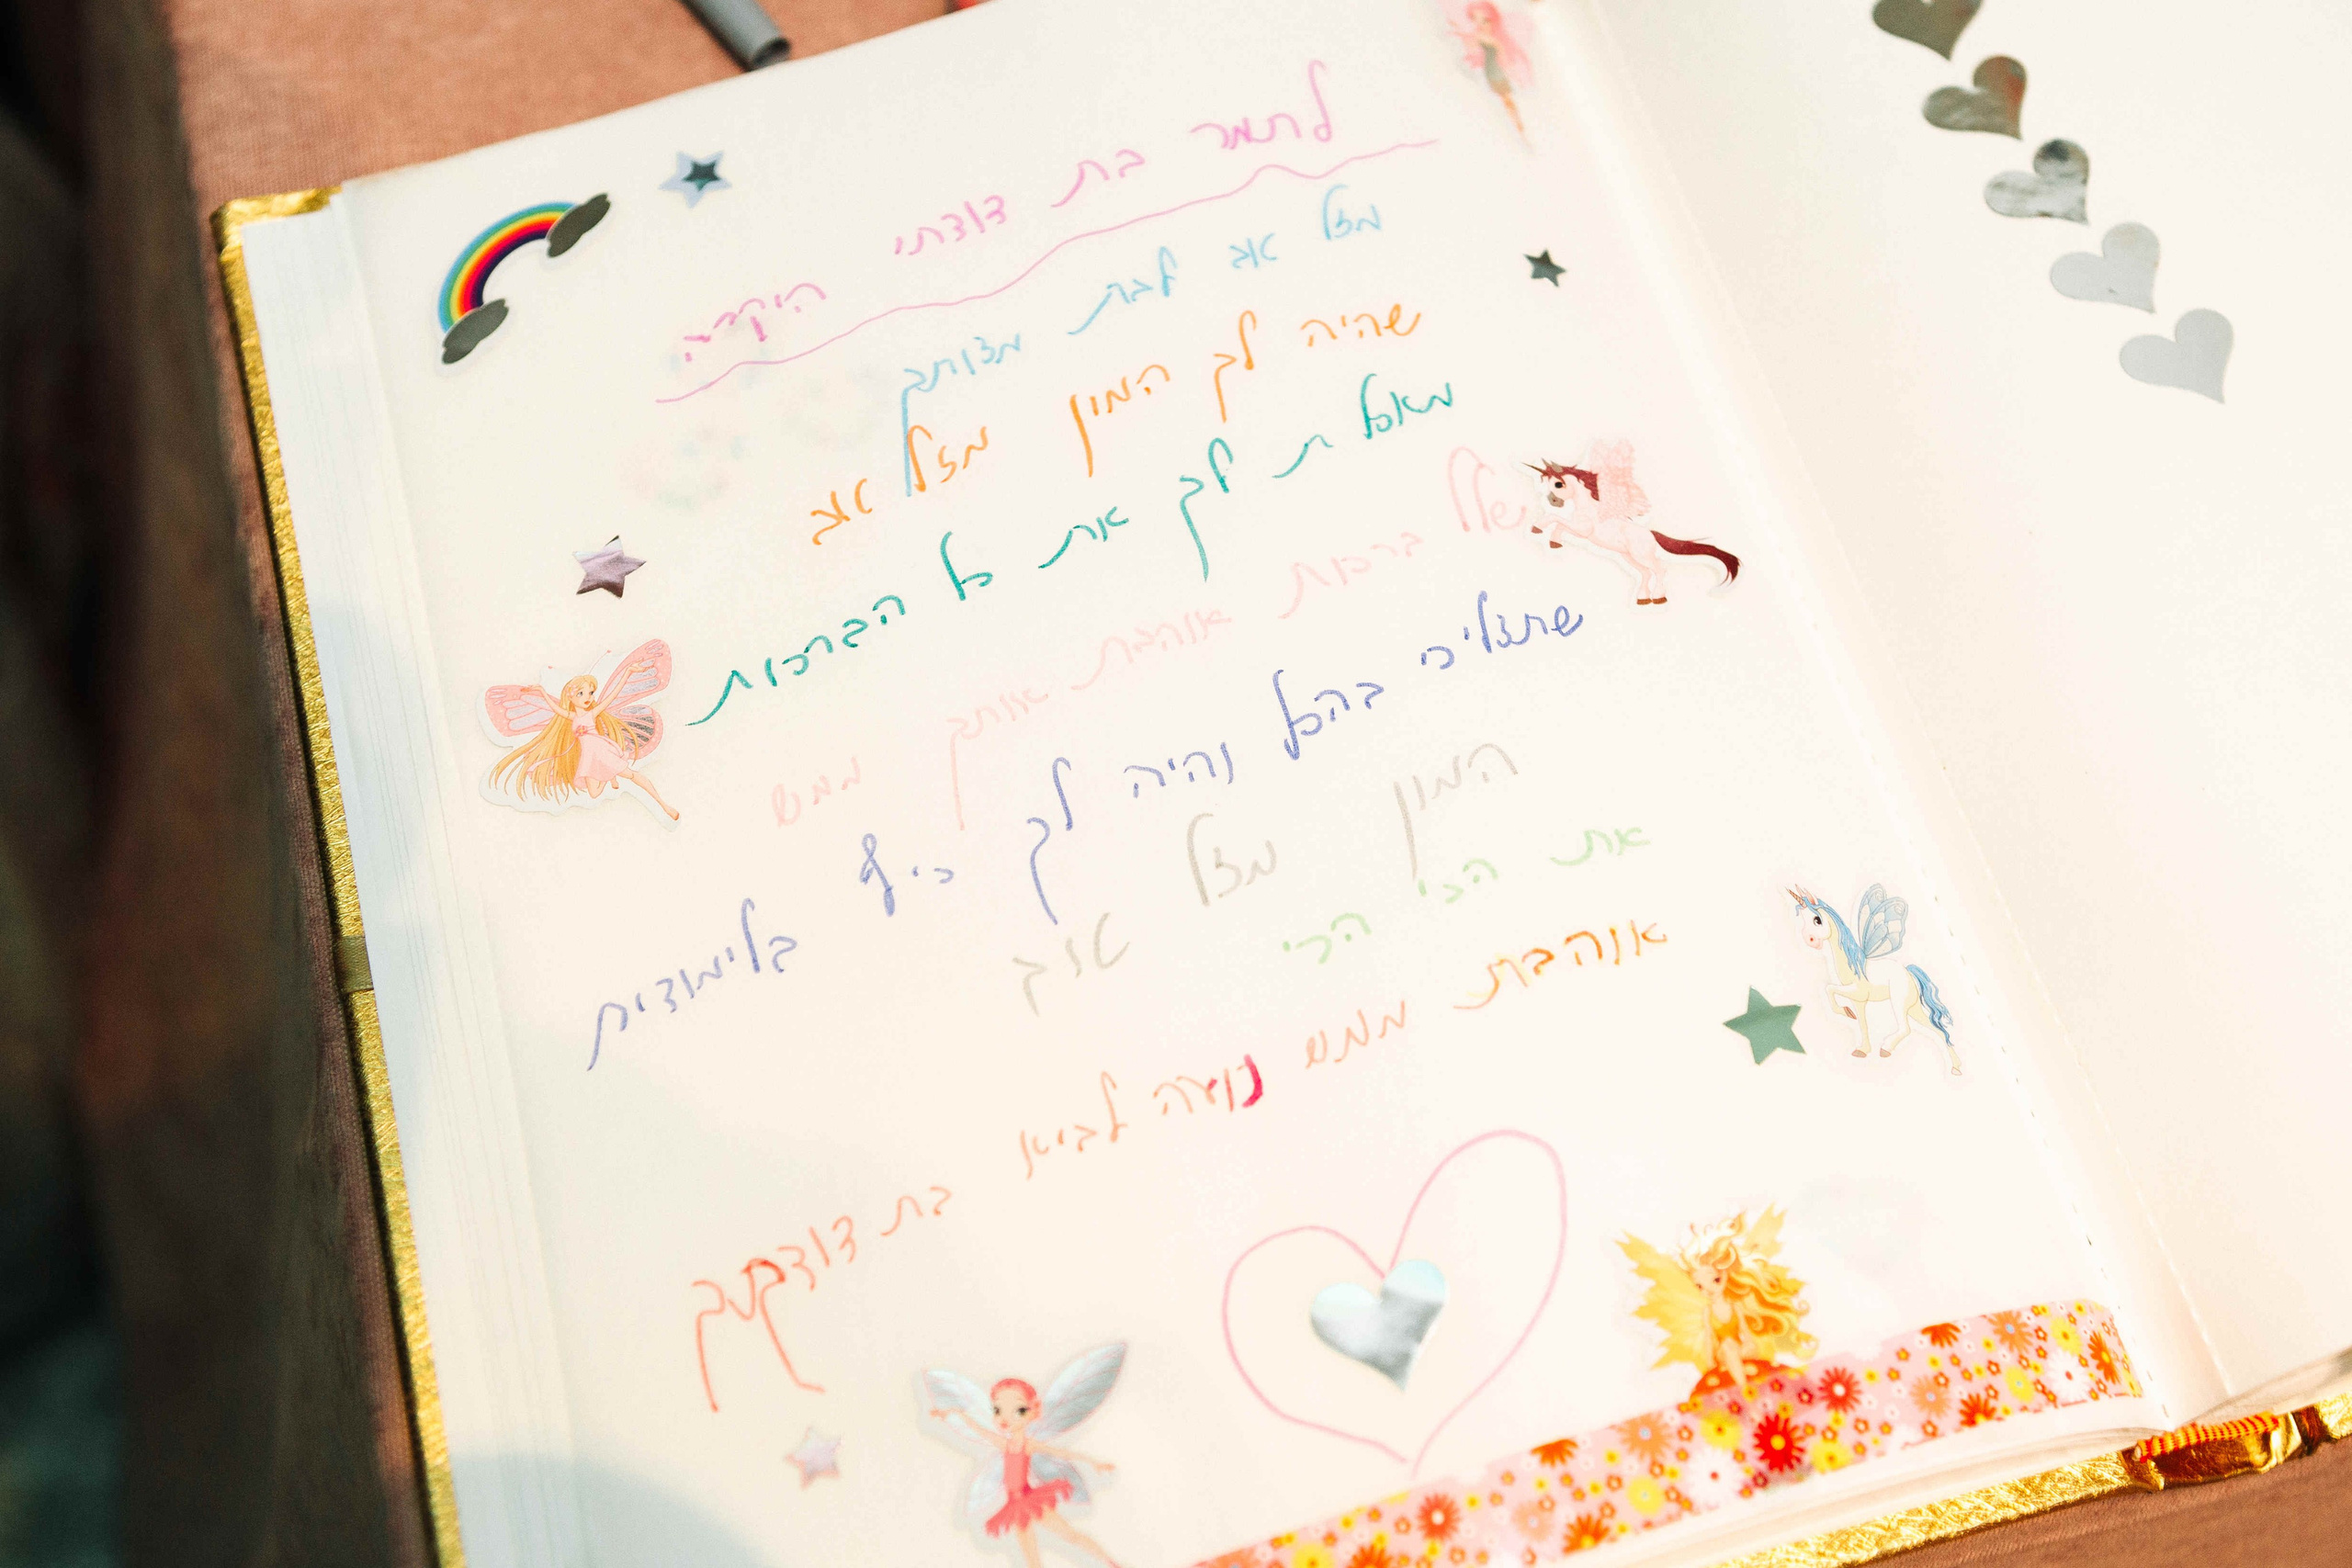 לתמר בת דודתי היקרה
מזל טוב לבת מצותך
שהיה לך המון מזל טוב
מאחלת לך את כל הברכות
שלל ברכות אוהבת אותך ממש
שתצליחי בהכל והיה לך כיף בלימודים
המון מזל טוב
את הכי הכי
אוהבת ממש נועה לביא
בת דודתך